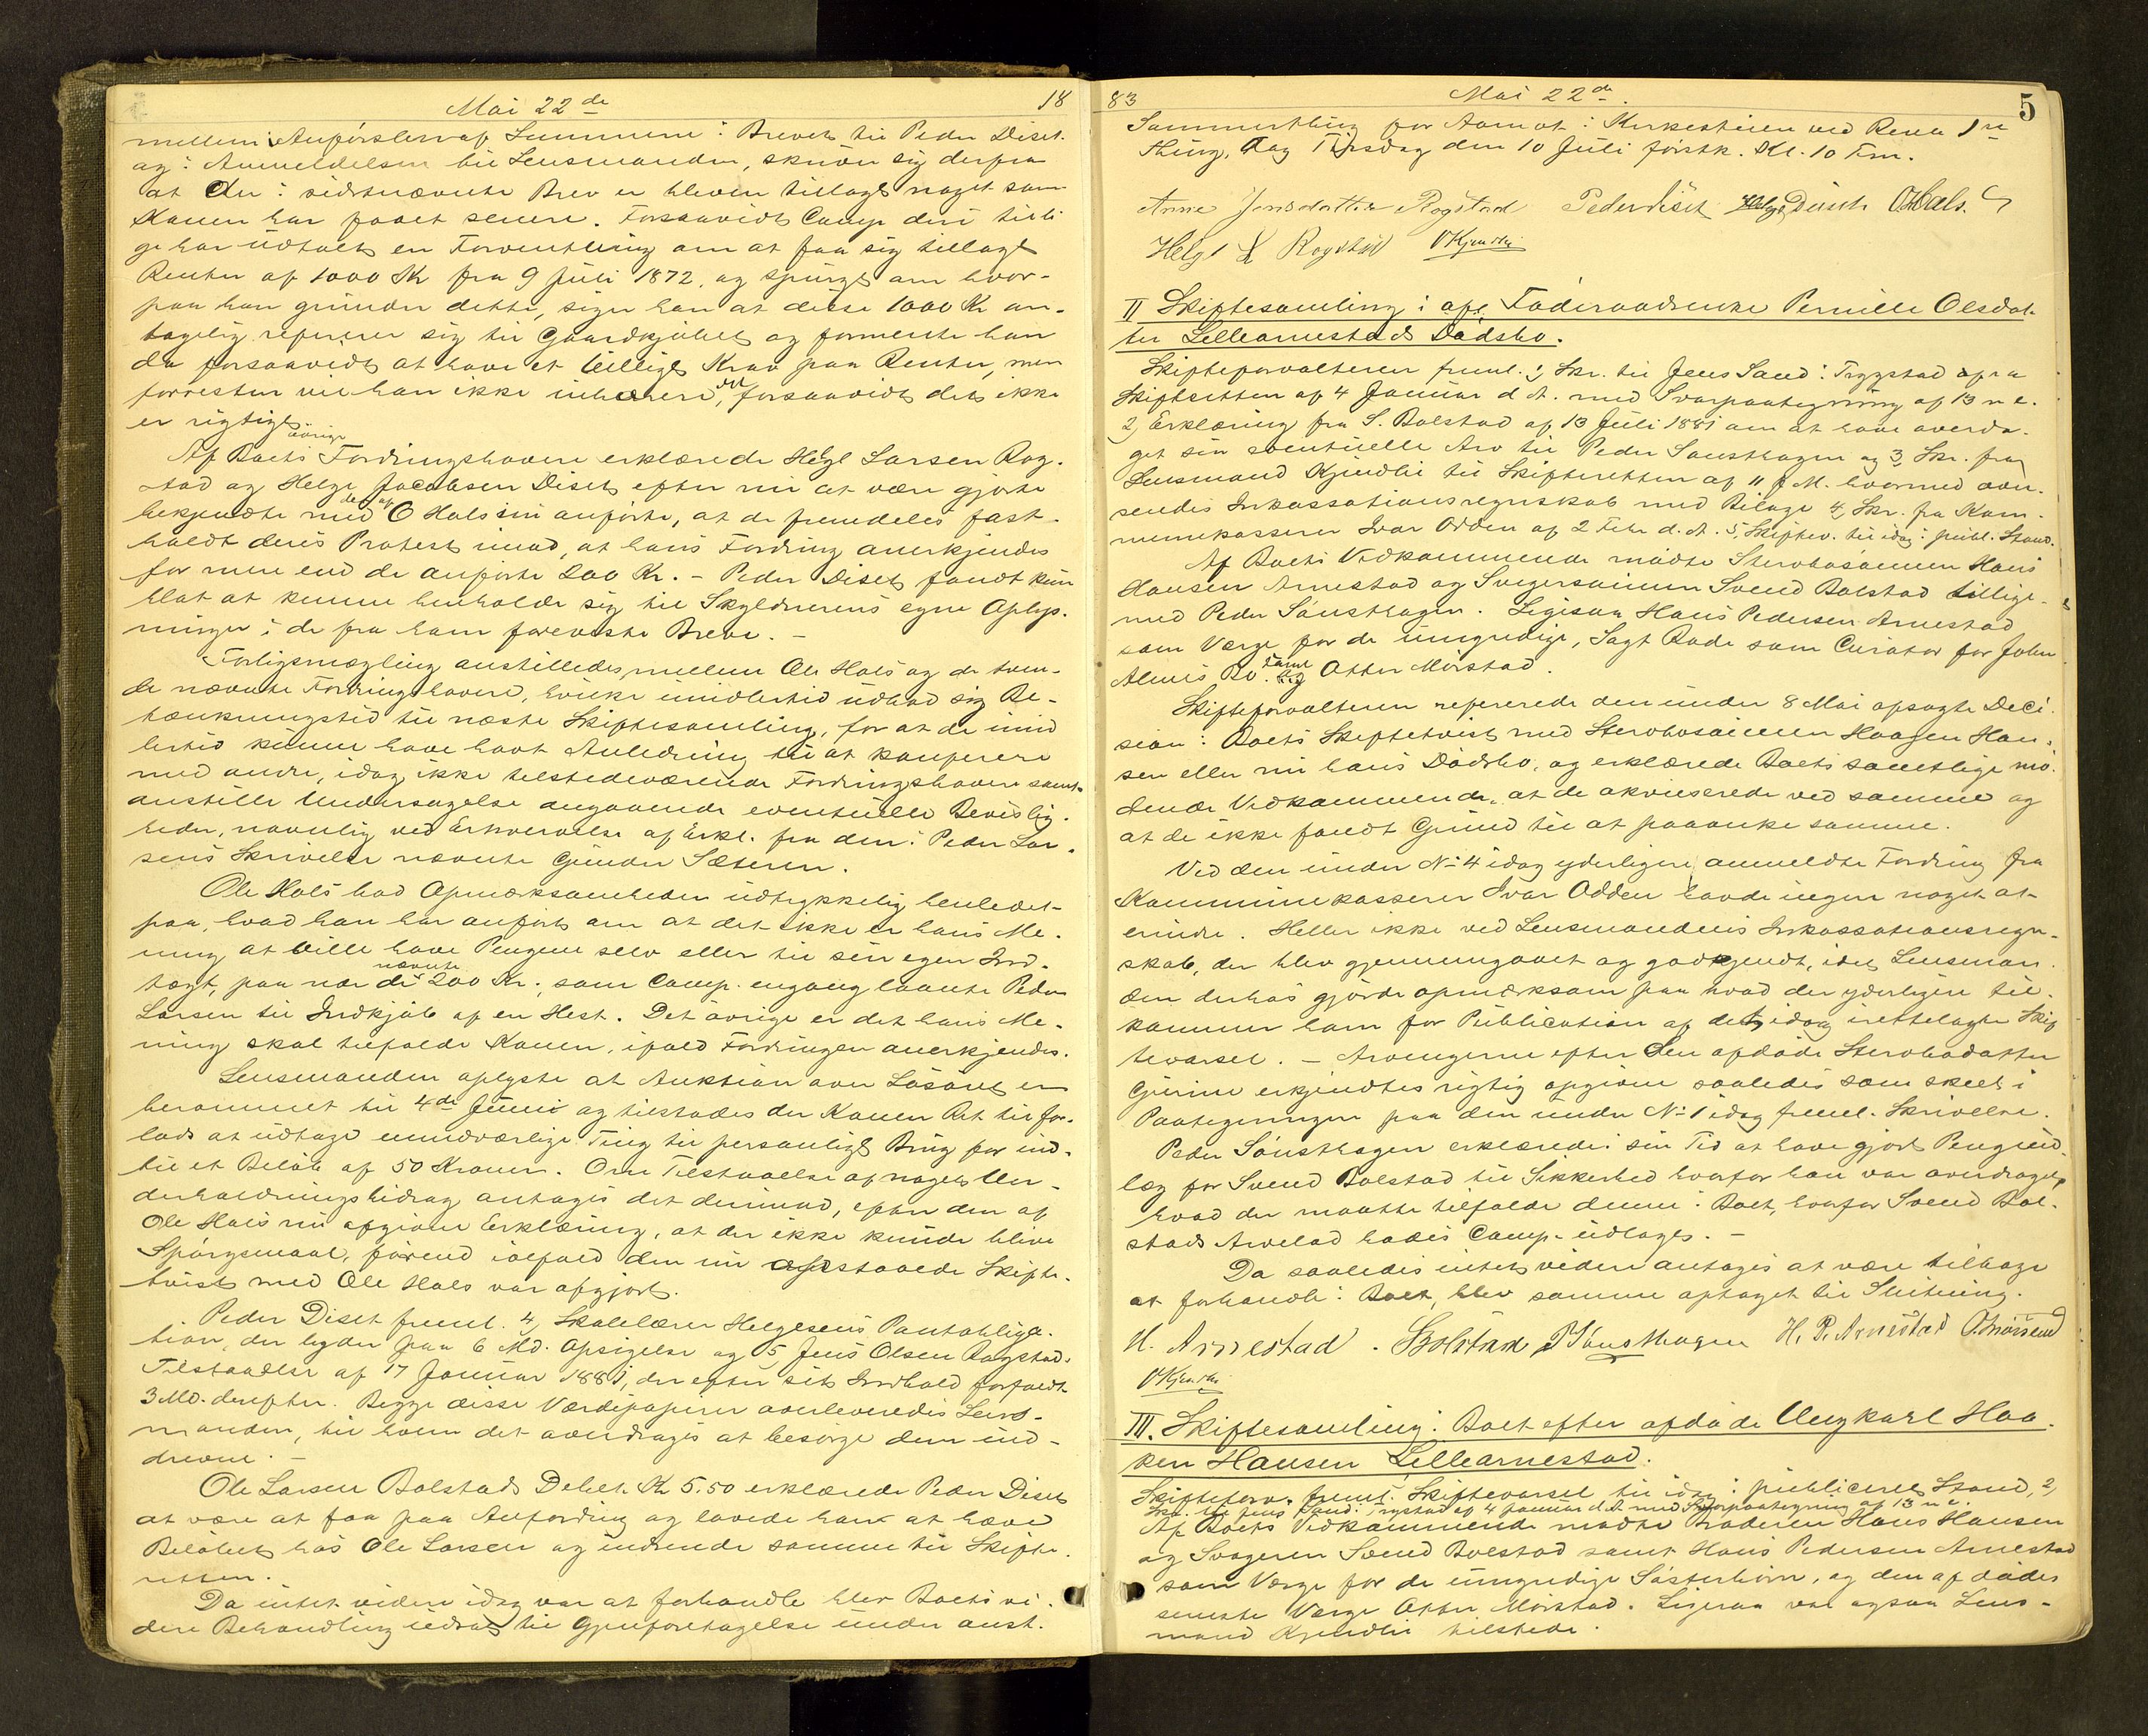 Mai 22de
18
mellem Anførslen af Summene i Brevet til Peder Diset
og i Anmeldelsen til Lensmanden, skriver sig derfra
at der i sidstnævnte Brev er bleven tillagt noget som
Konen har faaet senere. Forsaavidt Comp. deri tilli
ge har udtalt en Forventning om at faa sig tillagt
Renter af 1000 Kr fra 9 Juli 1872, og spurgt om hvor-
paa han grunder dette, siger han at disse 1000 Kr an-
tagelig refererer sig til Gaardkjøbet og formente han
da forsaavidt at have et billigt Krav paa Renter, men
forresten vil han ikke inhærere det, forsaavidt det ikke
er rigtigt.
Af Boets øvrige Fordringshavere erklærede Helge Larsen Rog-
stad og Helge Jacobsen Diset efter nu at være gjorte
bekjendte med det af O Hols nu anførte, at de fremdeles fast-
holdt deres Protest imod, at hans Fordring anerkjendes
for mere end de anførte 200 Kr. - Peder Diset fandt kun
blot at kunne henholde sig til Skyldnerens egne Oplys-
ninger i de fra ham foreviste Breve. -
Forligsmægling anstilledes mellem Ole Hols og de tven-
de nævnte Fordringshavere, hvilke imidlertid udbad sig Be-
tænkningstid til næste Skiftesamling, for at de imid
lertid kunne have havt Anledning til at konferere
med andre, idag ikke tilstedeværende Fordringshavere samt
anstille Undersøgelse angaaende eventuelle Bevislig-
heder, navnlig ved Erhvervelse af Erkl. fra den i Peder Lar-
sens Skrivelse nævnte Gunder Sæteren.
Ole Hols bad Opmærksomheden udtrykkelig henledet
paa, hvad han har anført om at det ikke er hans Me-
ning at ville have Pengene selv eller til sin egen Ind-
tægt, paa nær de nævnte 200 Kr., som Comp. engang laante Peder
Larsen til Indkjøb af en Hest. Det øvrige er det hans Me-
ning skal tilfalde Konen, ifald Fordringen anerkjendes.
Lensmanden oplyste at Auktion over Løsøret er
berammet til 4de Juni og tilstodes der Konen Ret til for-
lods at udtage uundværlige Ting til personligt Brug for ind-
til et Beløb af 50 Kroner. Om Tilstaaelse af noget Un-
derholdningsbidrag antages det derimod, efter den af
Ole Hols nu afgivne Erklæring, at der ikke kunde blive
Spørgsmaal, førend ialfald den nu opstaaede Skifte-
tvist med Ole Hols var afgjort.
Peder Diset freml. 4, Skolelærer Helgesens Pantobliga-
tion, der lyder paa 6 Md. Opsigelse og 5, Jens Olsen Rogstad.
Tilstaaelse af 17 Januar 1881, der efter sit Indhold forfaldt
3 Md. derefter. Begge disse Værdipapirer overleveredes Lens-
manden, til hvem det overdrages at besørge dem ind-
drevne. -
Ole Larsen Bolstads Debet Kr 5.50 erklærede Peder Diset
at være at faa paa Anfordring og lovede han at hæve
Beløbet hos Ole Larsen og indsende samme til Skifte-
retten.
Da intet videre idag var at forhandle blev Boets vi-
dere Behandling udsat til Gjenforetagelse under anst.
83
Mai 22de.
5
Sommerthing for Aamot i Kirkestuen ved Rena 1ste
Thing. Dag Tirsdag den 10 Juli førstk. Kl. 10 Fm.
Anne Jensdatter Rogstad Peder Diset Helge Diset OHols.
Helge L Rogstad OKjendlie
II Skiftesamling i afd. Føderaadsenke Pernille Olsdat-
ter Lillearnestads Dødsbo.
Skifteforvalteren freml. 1, Skr. til Jens Sand i Trygstad fra
Skifteretten af 4 Januar d A. med Svarpaategning af 13 n e.
2, Erklæring fra S. Bolstad af 13 Juli 1881 om at have overdra-
get sin eventuelle Arv til Peder Sønsthagen og 3, Skr. fra
Lensmand Kjendlie til Skifteretten af 11 f M. hvormed over-
sendes Inkassationsregnskab med Bilage 4, Skr. fra Kom-
munekasserer Ivar Odden af 2 Febr d. A. 5, Skiftev. til idag i publ. Stand.
Af Boets Vedkommende mødte Stervbosønnen Hans
Hansen Arnestad og Svigersønnen Svend Bolstad tillige-
med Peder Sønsthagen. Ligesaa Hans Pedersen Arnestad
som Værge for de umyndige, Sagf. Rode som Curator for John
Alms Bo. samt Otter Mørstad.
Skifteforvalteren refererede den under 8 Mai afsagte Deci-
sion i Boets Skiftetvist med Stervbosønnen Haagen Han-
sen eller nu hans Dødsbo, og erklærede Boets samtlige mø-
dende Vedkommende, at de akvieserede ved samme og
at de ikke fandt Grund til at paaanke samme.
Ved den under No 4 idag yderligere anmeldte Fordring fra
Kommunekasserer Ivar Odden havde ingen noget at
erindre. Heller ikke ved Lensmandens Inkassationsregn-
skab, der blev gjennemgaaet og godkjendt, idet Lensman-
den derhos gjorde opmærksom paa hvad der yderligere til-
kommer ham for Publication af det idag irettelagte Skif
tevarsel. - Arvingerne efter den afdøde Stervbodatter
Gurine erkjendtes rigtig opgivne saaledes som skeet i
Paategningen paa den under No 1 idag freml. Skrivelse.
Peder Sønsthagen erklærede i sin Tid at have gjort Pengeud-
læg for Svend Bolstad til Sikkerhed hvorfor han var overdraget,
hvad der maatte tilfalde denne i Boet, hvorfor Svend Bol-
stads Arvelod bades Comp. udlagt. -
Da saaledes intet videre antages at være tilbage
at forhandle i Boet, blev samme optaget til Slutning.
H. Arnestad . SBolstad PSønsthagen H. P. Arnestad O. Mørstad
OKjendlie
III. Skiftesamling i Boet efter afdøde Ungkarl Haa-
ken Hansen Lillearnestad.
Skifteforv. freml. Skiftevarsel til idag i publiceret Stand, 2,
Skr. til Jens Sand i Trygstad af 4 Januar d A. med Svarpaategning af 13 n e.
Af Boets Vedkommende mødte Broderen Hans Hansen
og Svogeren Svend Bolstad samt Hans Pedersen Arnestad
som Værge for de umyndige Søsterbørn, og den afdødes
seneste Værge Otter Mørstad. Ligesaa var ogsaa Lens-
mand Kjendlie tilstede.